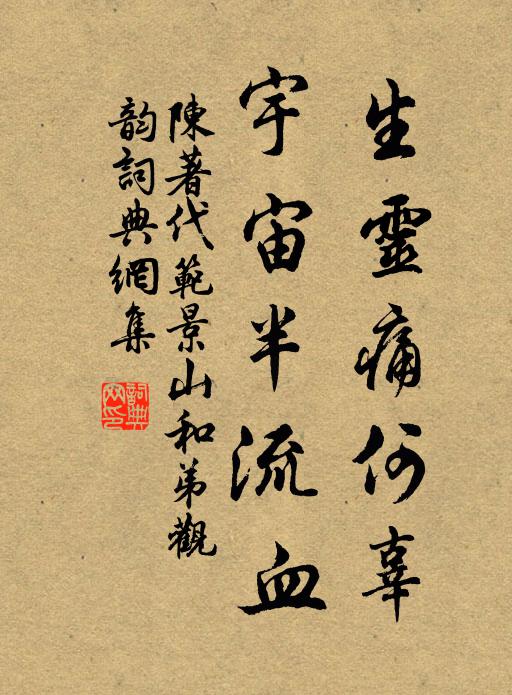 生靈痛何辜
宇宙半流血
陳著代範景山和弟觀
韵詞典網集
詞典网印